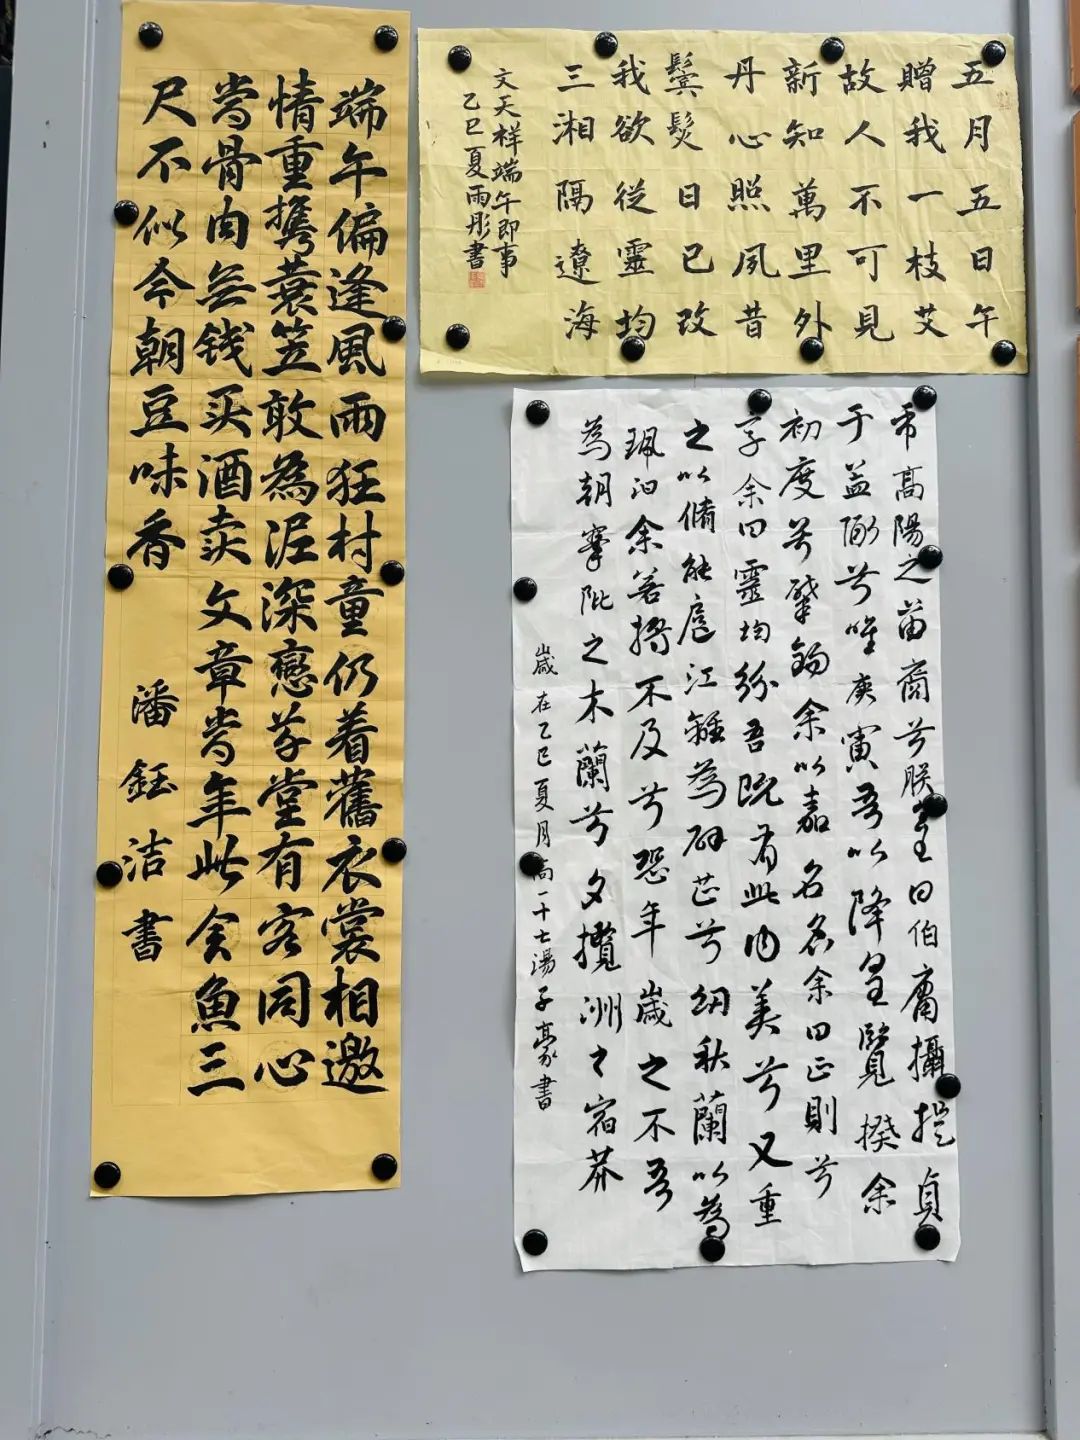 端午偏逢風雨狂村童仍着舊衣裳相邀
情重攜蓑笠敢為泥深戀草堂有客同心
當骨肉無钱买酒卖文章當年此会魚三
尺不似今朝豆味香
潘鈺洁書
五月五日午
贈我一枝艾
故人不可見
新知萬里外
丹心照夙昔
鬢髮日已改
我欲從靈均
三湘隔遼海
文天祥端午即事
乙巳夏雨彤書
帝高陽之苗裔兮朕皇曰伯庸攝提貞
于孟陬兮唯庚寅吾以降皇覽揆余
初度兮肇錫余以嘉名名余曰正則兮
字余曰靈均紛吾既有此内美兮又重
之以脩能扈江離為辟芷兮紉秋蘭以為
珮汩余若將不及兮恐年歲之不吾
為朝搴阰之木蘭兮夕攬洲之宿莽
歲在乙巳夏月高一十七湯子豪書